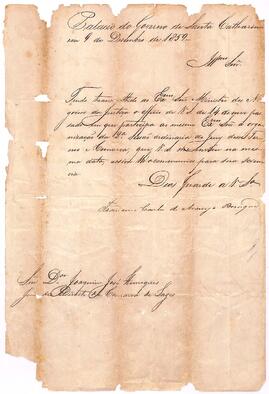 Palacio do Governo de Santa Catharina
em 9 de Dezembro de 1859.
Illmo Snr
Tendo transmittido ao Exmo Snr Ministro dos Ne
gocios da Justiça o officio de V. S. de 14 de
sado em que participa ao mesmo Exmo Snr
da ordinaria do jury desse Ter
mo e Comarca, que V. S. na mes
ma data, assim lh'o communico para sua scien
cia.
Deos Guarde a V. Sa
Francisco Carlos de Araujo Brusque
Snr Dor Joaquim José Henriques
Juiz de Direito da Comarca de Lages